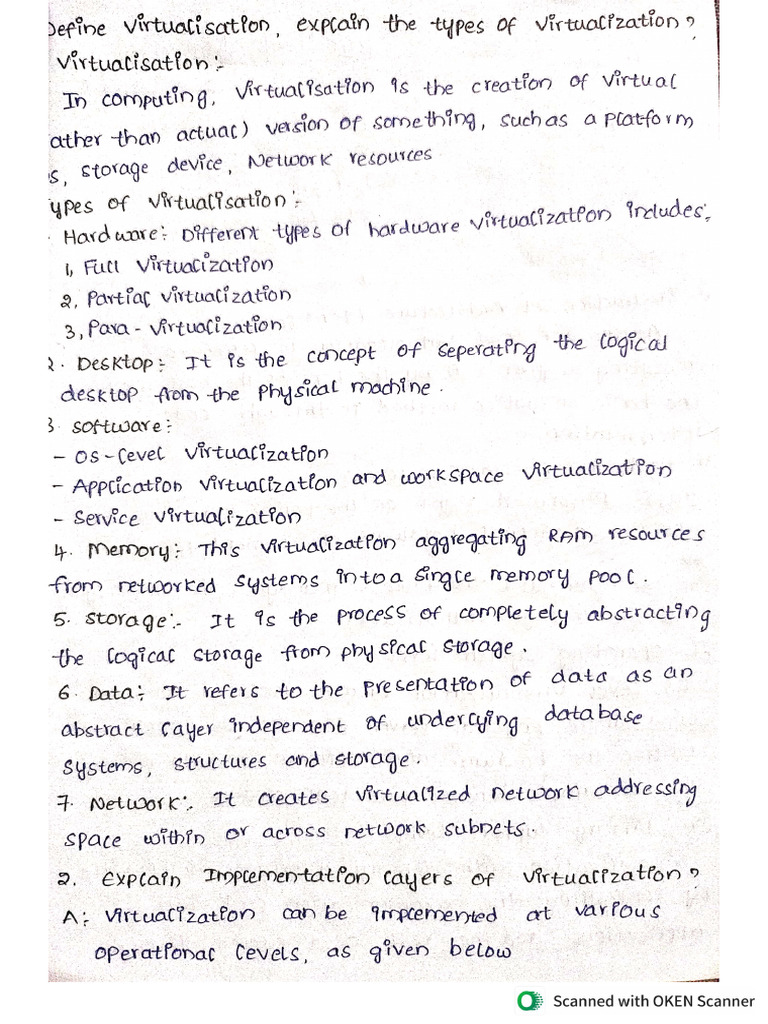 Define Virtualisation, explain the types of virtualization?
Virtualisation:-
In computing, virtualisation is the creation of virtual
ather than actual) version of something, such as a platform
s, storage device, Network resources
ypes of virtualisation:-
Hardware: Different types of hardware virtualization includes,
1, Full virtualization
2, Partial virtualization
3, Para - virtualization
2. Desktop: It is the concept of seperating the logical
desktop from the physical machine.
3. software:
- OS-level virtualization
- Application virtualization and workspace virtualization
- Service virtualization
4. Memory: This virtualization aggregating RAM resources
from networked systems into a single memory pool.
5. Storage:- It is the process of completely abstracting
the logical storage from physical storage.
6. Data: It refers to the presentation of data as an
abstract layer independent of underlying database
systems, structures and storage.
7. Network:. It creates virtualized network addressing
space within or across network subnets.
2. Explain Implementation layers of virtualization?
A: Virtualization can be implemented at various
operational levels, as given below
Scanned with OKEN Scanner